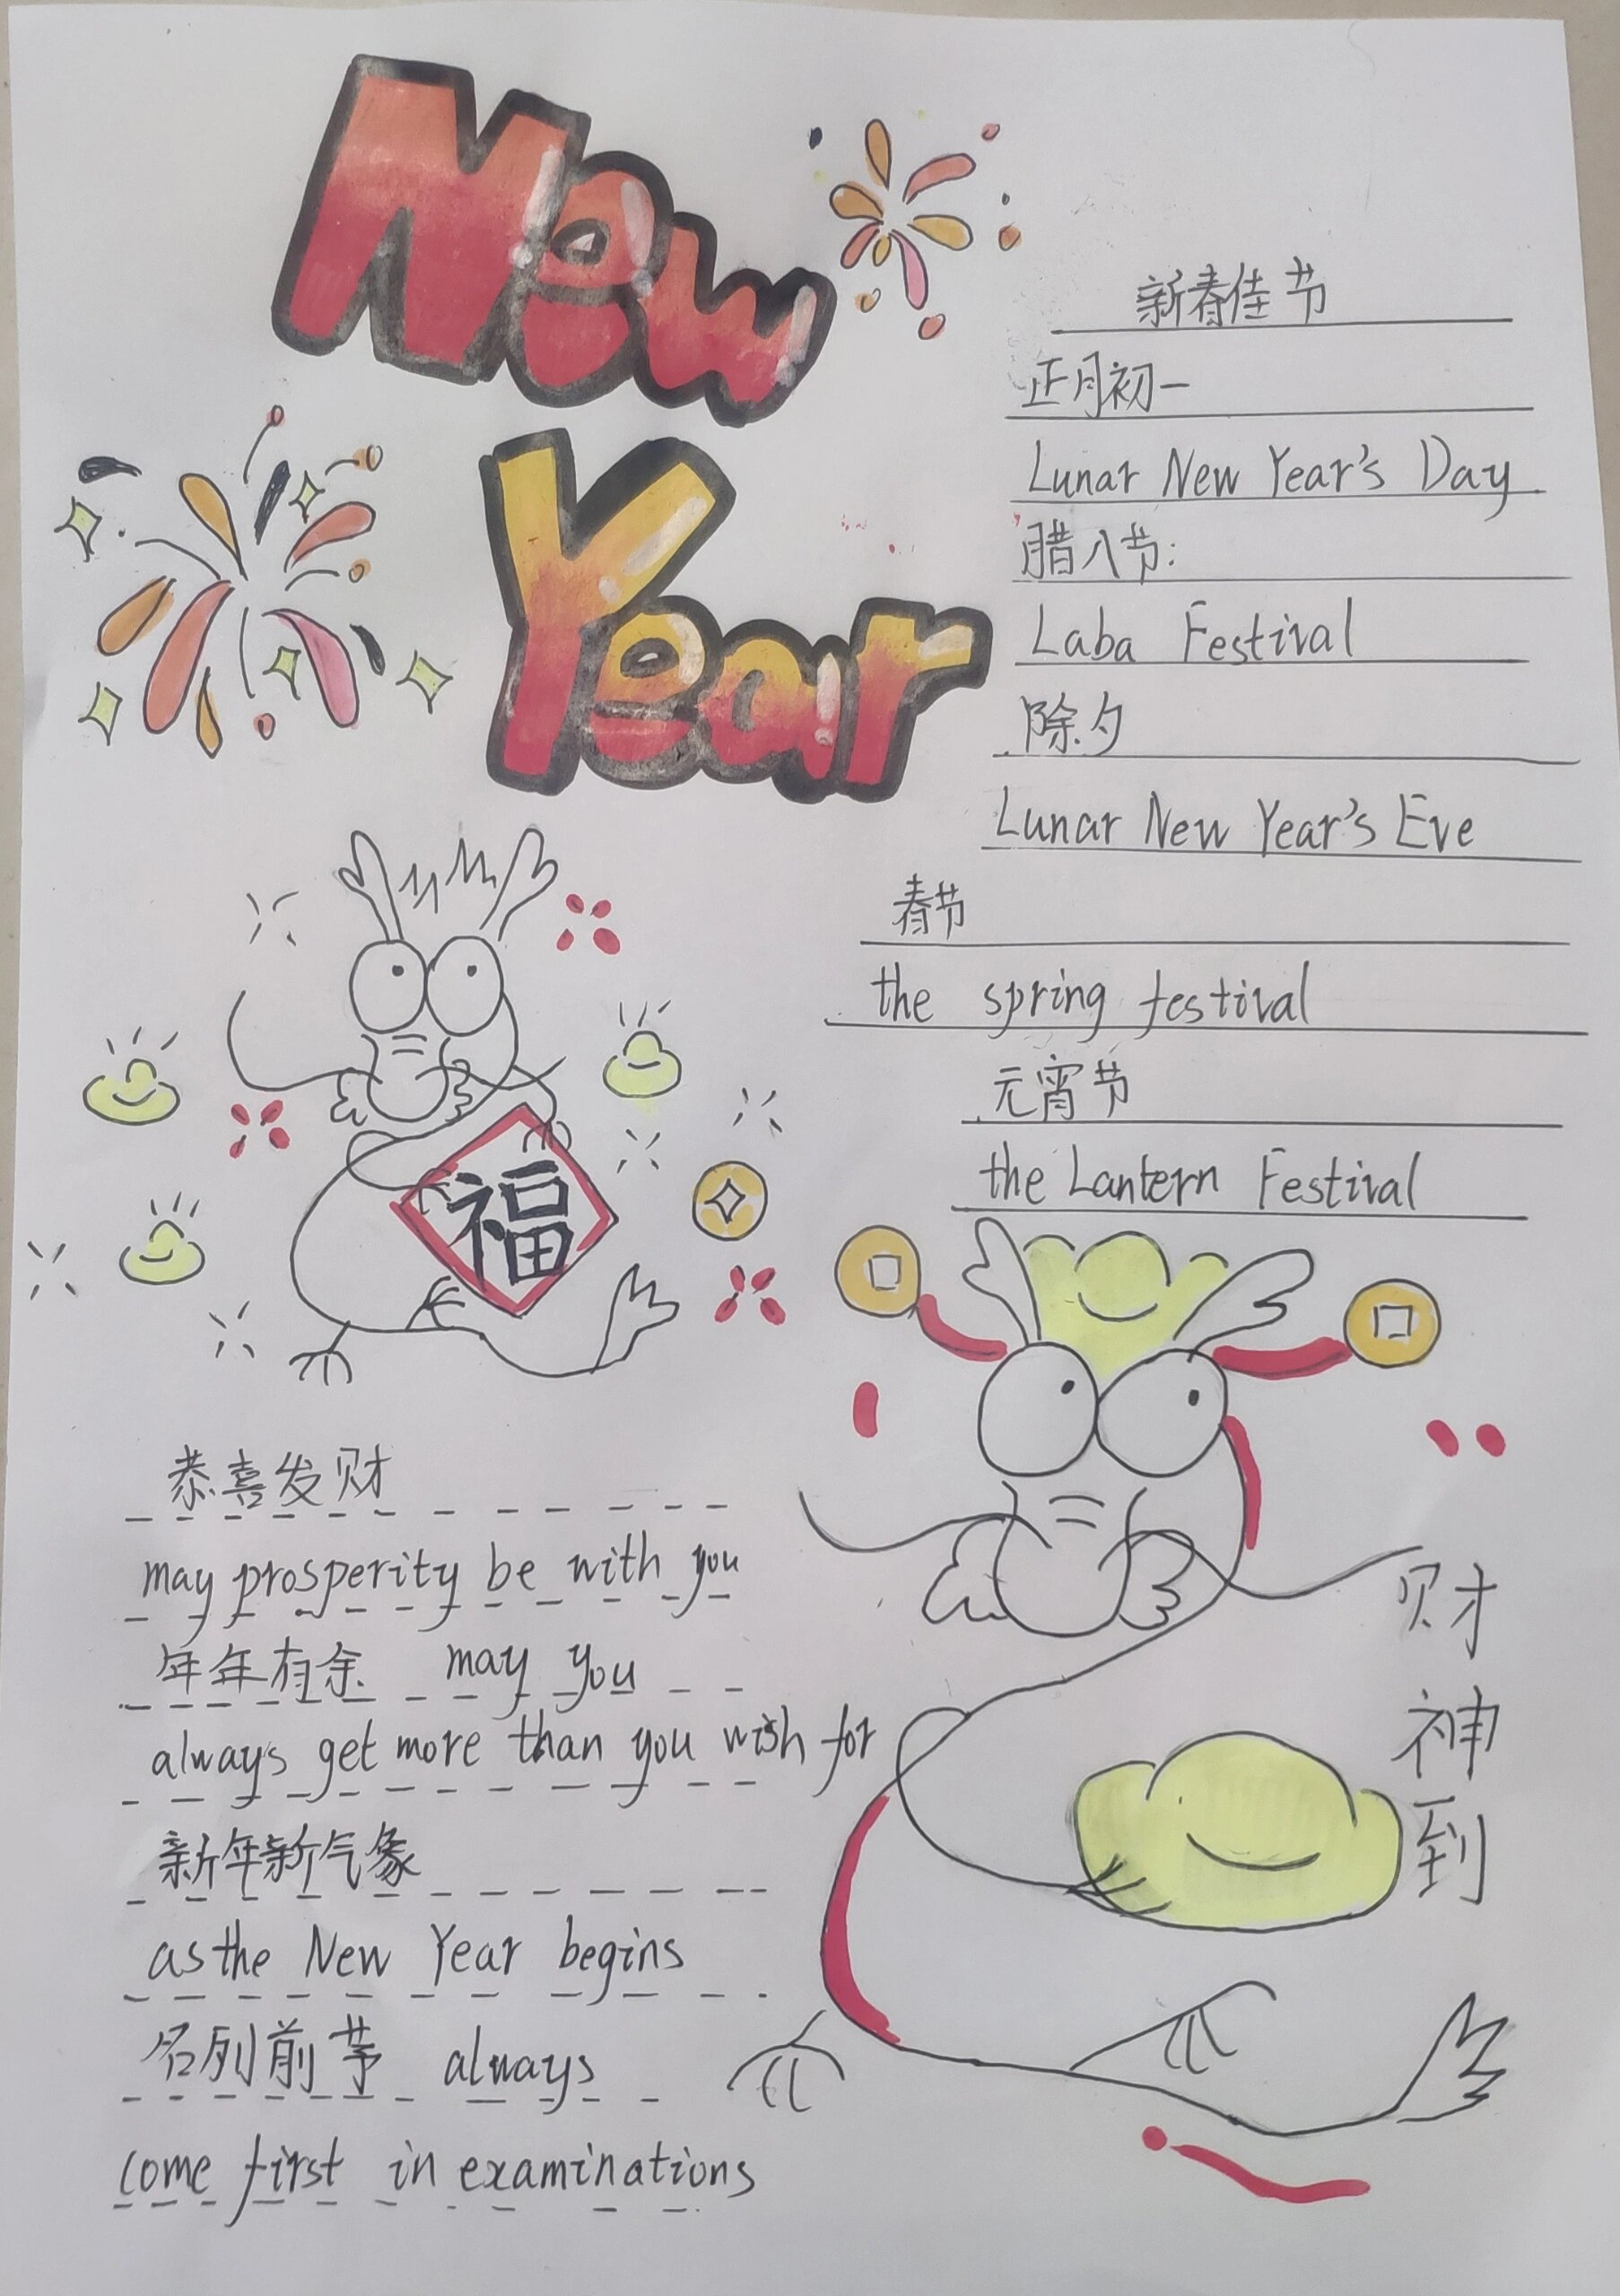 New
Year
新春佳节
正月初一
Lunar New Year's Day
腊八节:
Laba Festival
除夕
Lunar New Year's Eve
春节
the spring festival
元宵节
the Lantern Festival
福
恭喜发财
may prosperity be with you
年年有余 may you
always get more than you wish for
新年新气象
as the New Year begins
名列前茅 always
come first in examinations
财
神
到